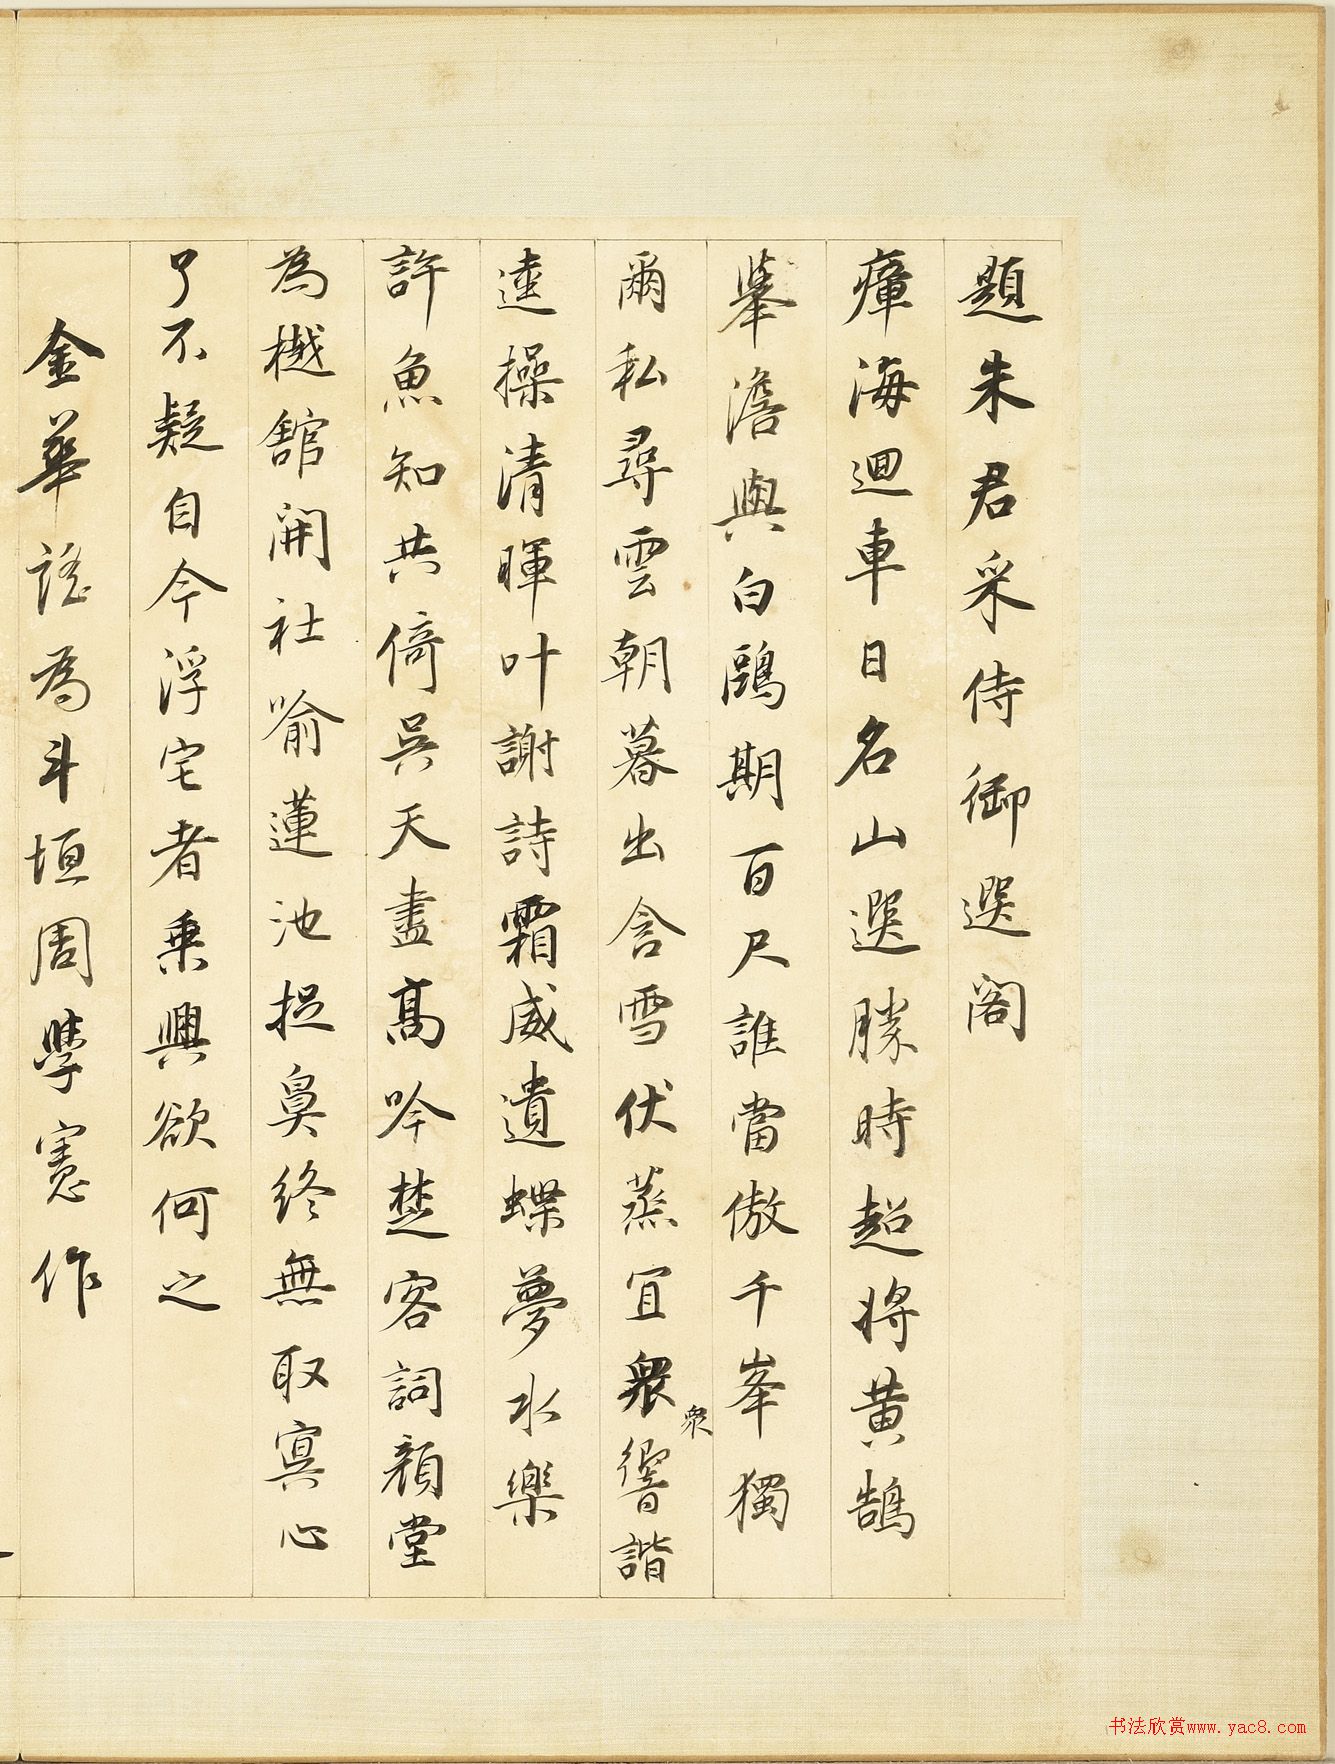 題朱君采侍御選閣
瘴海迴車日名山選勝時超將黃鵠
舉澹與白鷗期百尺誰當傲千峯獨
爾私尋雲朝暮出含雪伏蒸宜衆響諧
衆
逵操清暉叶謝詩霜威遺蝶夢水樂
許魚知共倚吳天盡高吟楚客詞顏堂
為樾舘開社喻蓮池捉鼻終無取冥心
了不疑自今浮宅者乗興欲何之
金華謠為斗垣周學憲作
书法欣赏www.yac8.com